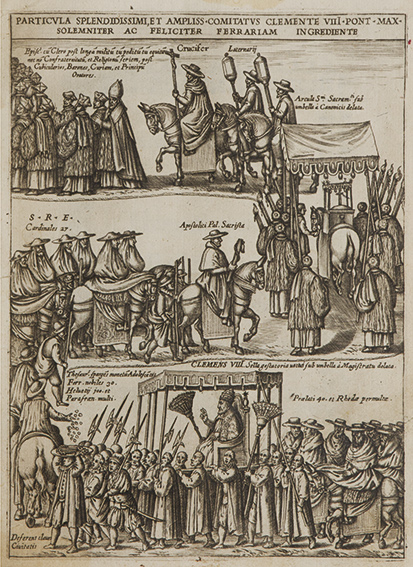 PARTICVLA SPLENDIDISSIMI, ET AMPLISS·COMITATVS CLEMENTE VIII·PONT·MAX·
SOLEMNITER AC FELICITER FERRARIAM INGREDIENTE
Episc. cū Clero post longā militū tū peditū tū equitū
nec nō Confraternitatū, et Religionū seriem, post
Cubicularios, Barones, Curiam, et Principū
Oratores.
Crucifer
Laternarij
Arcula S.mi Sacram.ti sub
umbella à Canonicis delata.
S · R · E ·
Cardinales 27.
Apostolici Pal. Sacrista
CLEMENS VIII. Sella gestatoria vectus sub umbella à Magistratu delata.
Thesaur. spargens monetas
Fer. nobiles 30.
Helvetij 300. et
Parafren. multi.
Praelati 40. et Rhedae permultae.
Deferens claves
Civitatis